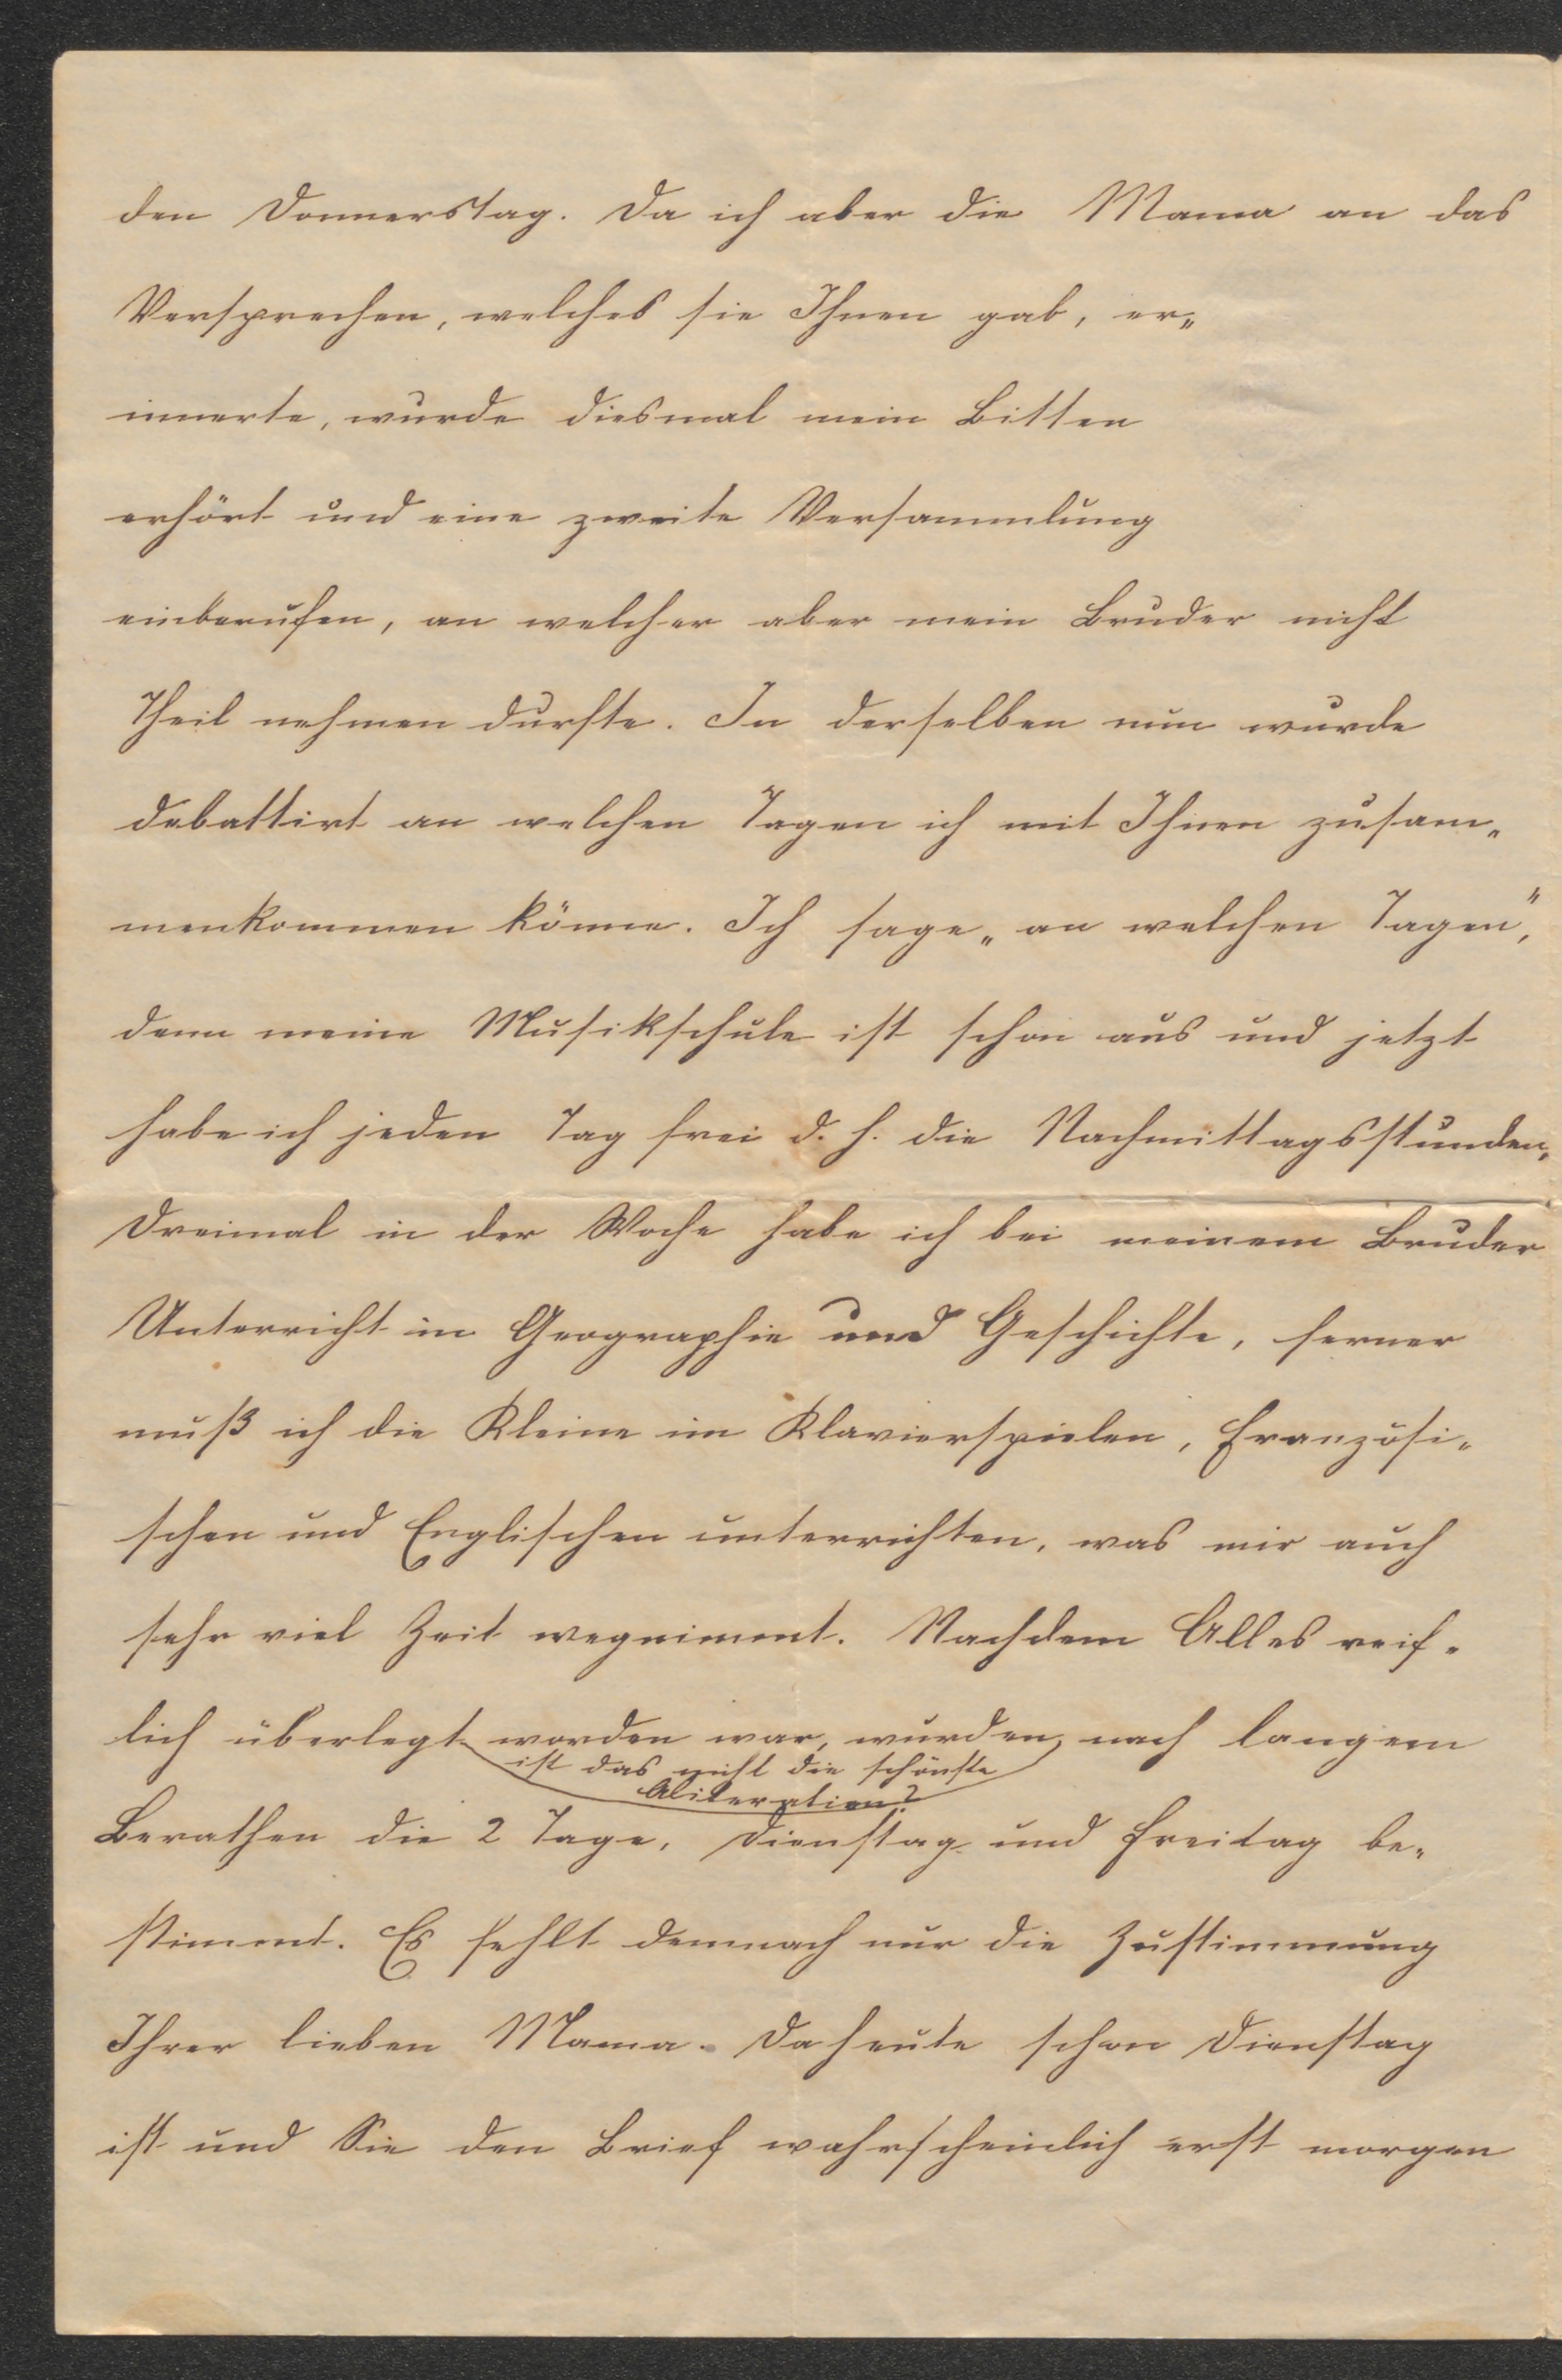 den Donnerstag. Da ich aber die Mama an das
Versprechen, welches sie Ihnen gab, er„
innerte, wurde diesmal mein Bitten
erhört und eine zweite Versammlung
einberufen, an welcher aber mein Bruder nicht
Theil nehmen durfte. In derselben nun wurde
debattirt an welchen Tagen ich mit Ihnen zusam„
menkommen könne. Ich sage „an welchen Tagen",
denn meine Musikschule ist schon aus und jetzt
habe ich jeden Tag frei d. h. die Nachmittagsstunden,
Dreimal in der Woche habe ich bei meinem Bruder
Unterricht in Geographie und Geschichte, ferner
muß ich die Kleine im Klavierspielen, Französi„
schen und Englischen unterrichten, was mir auch
sehr viel Zeit wegnimmt. Nachdem Alles reif„
lich überlegt worden war, wurden, nach langem
ist das nicht die schönste
Aliteration?
Berathen die 2 Tage, Dienstag und Freitag be„
stimmt. Es fehlt demnach nur die Zustimmung
Ihrer lieben Mama. Da heute schon Dienstag
ist und Sie den Brief wahrscheinlich erst morgen